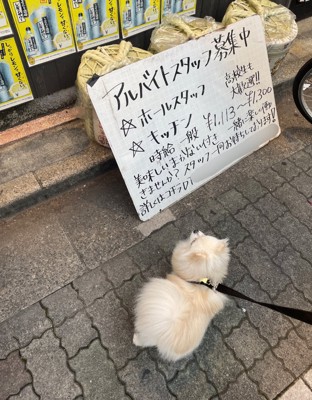 アルバイトスタッフ募集中
☆ホールスタッフ
☆キッチン
高校生も
大歓迎!!
時給 一般 ¥1,113〜¥1,300
美味しいまかない付き 一緒に楽しく働
きませんか?スタッフ一同お待ちしております!!
詳しくはコチラDi